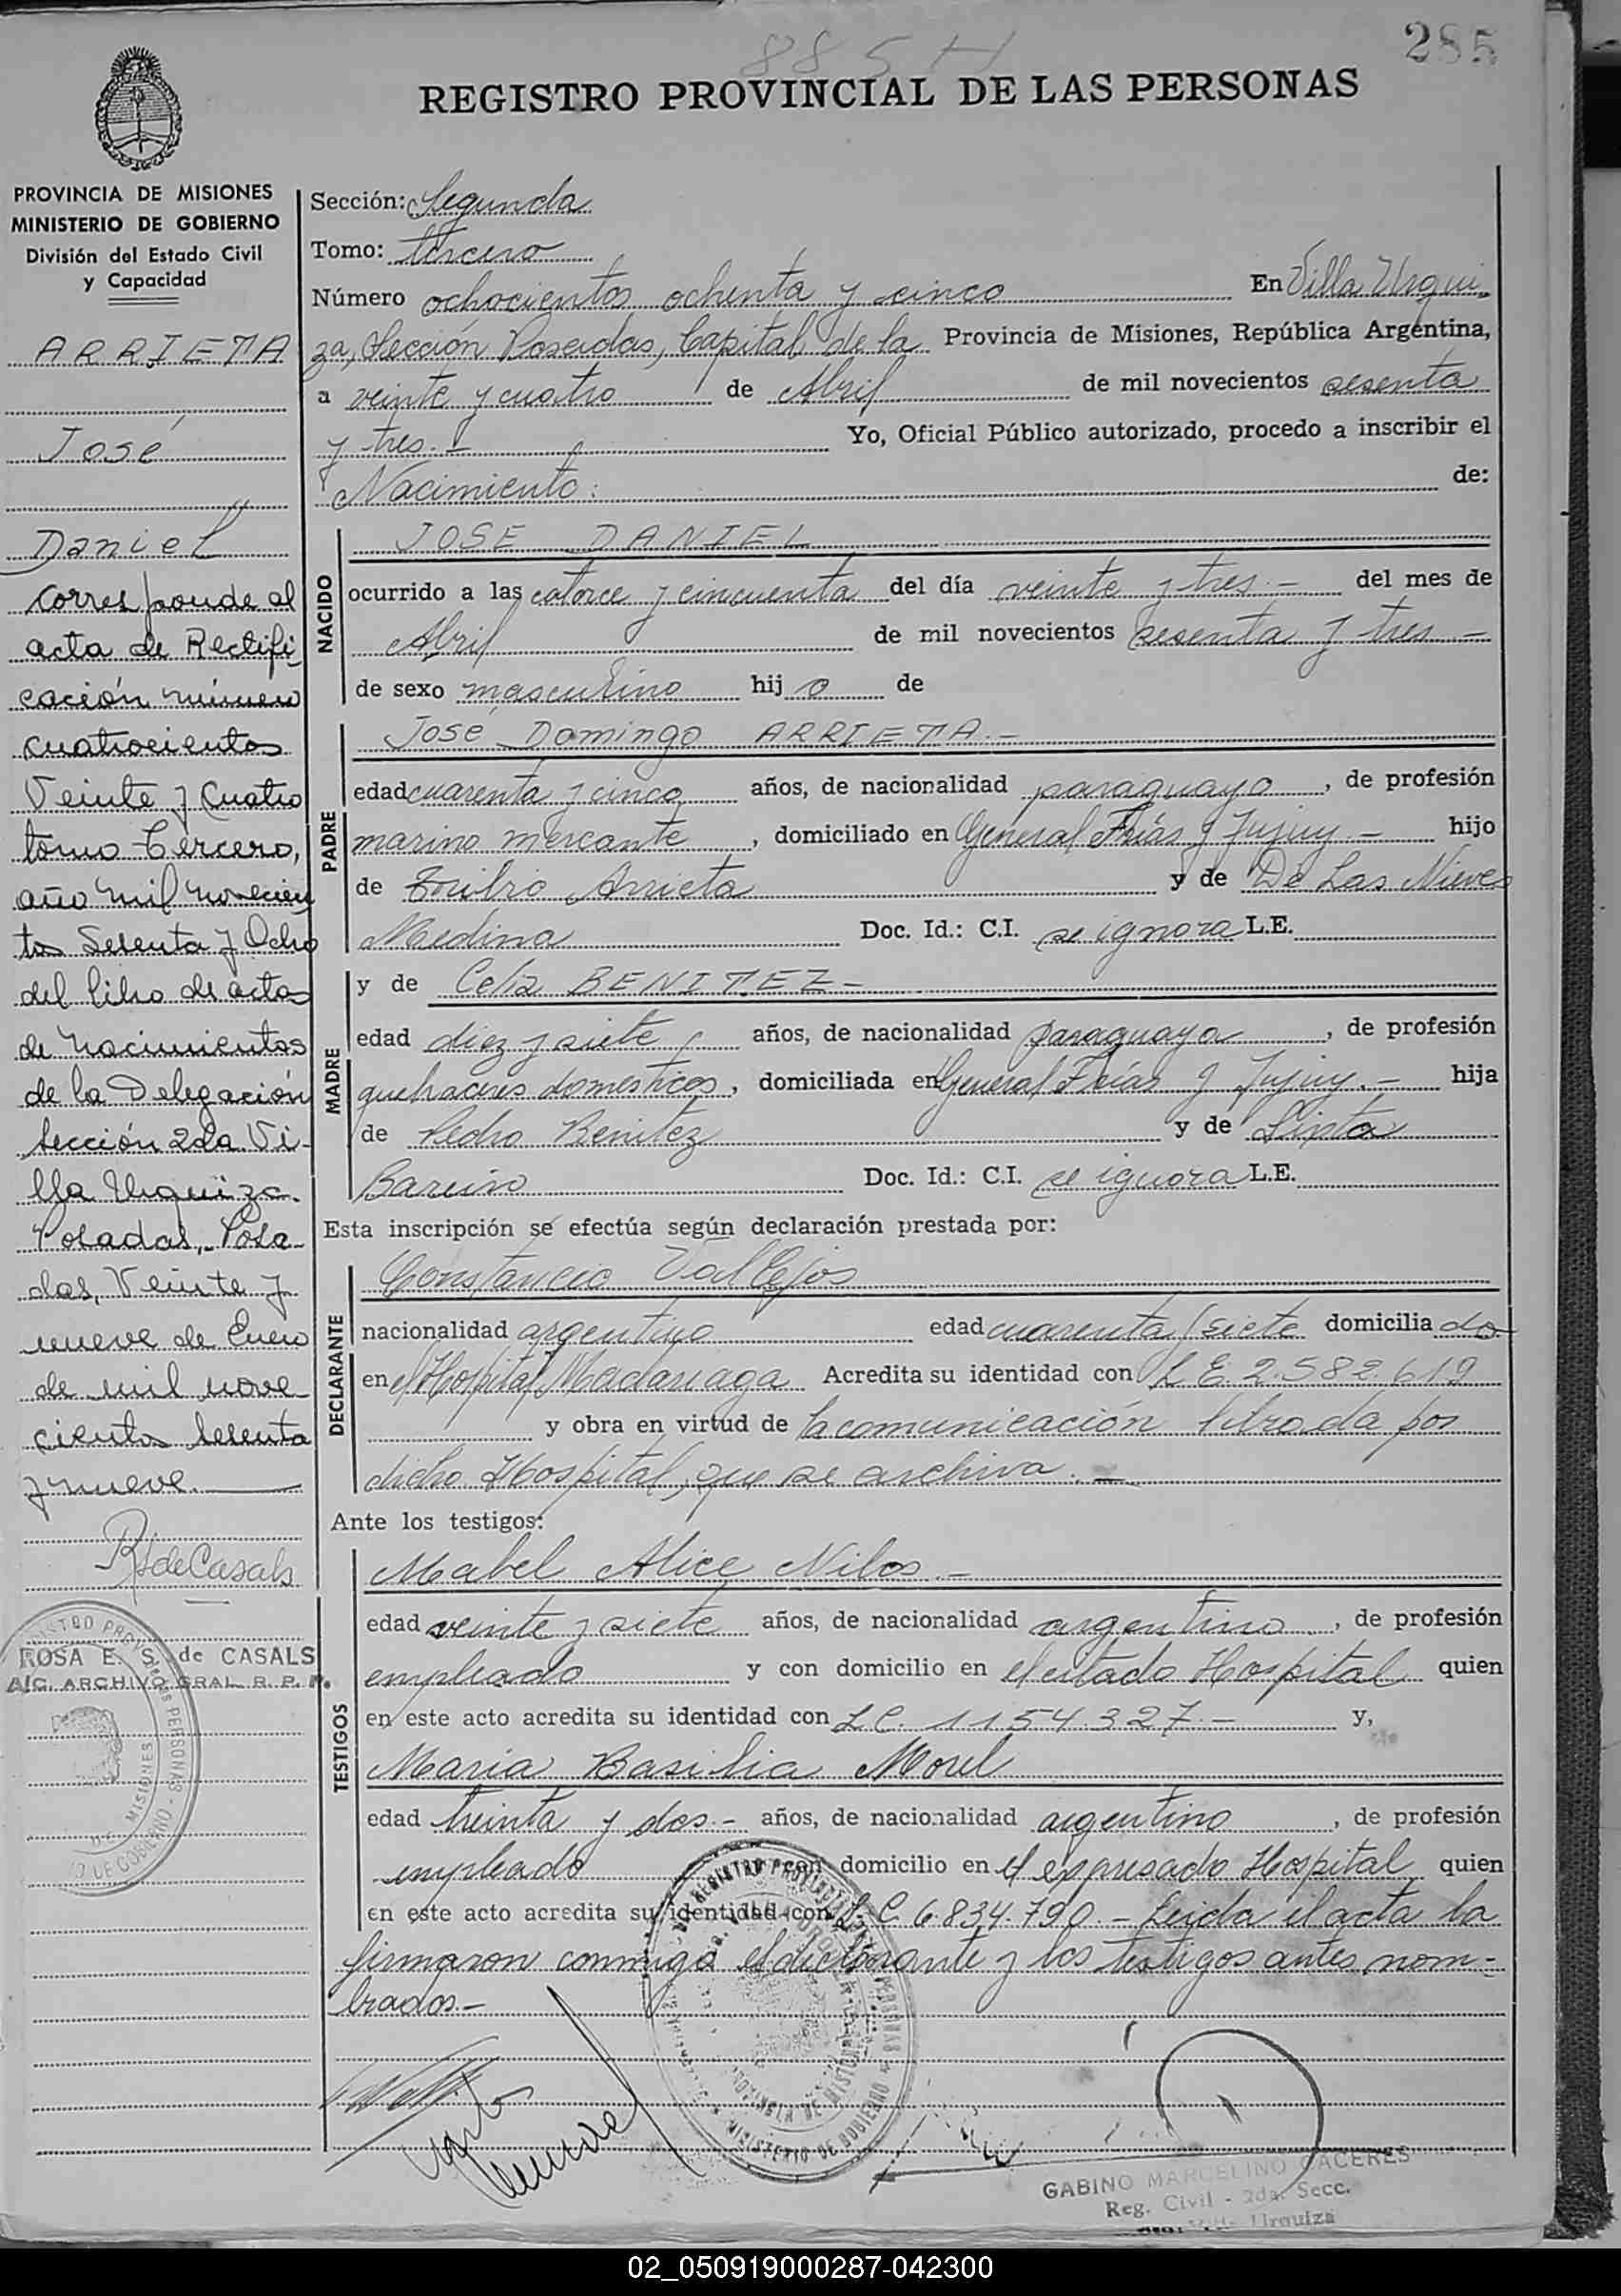 285
885 H
REGISTRO PROVINCIAL DE LAS PERSONAS
PROVINCIA DE MISIONES
MINISTERIO DE GOBIERNO
División del Estado Civil
y Capacidad
ARRIETA
José
Daniel
Corresponde al
acta de Rectifi
cación número
cuatrocientos
Veinte y Cuatro
tomo Tercero,
año mil novecien
tos Setenta y Ocho
del libro de actas
de nacimientos
de la Delegación
Sección 2da. Vi-
lla Urquiza.
Posadas, Posa
das, Veinte y
nueve de Enero
de mil nove
cientos setenta
y nueve.
R S de Casals
ROSA E. S. de CASALS
A/C. ARCHIVO GRAL. R. P. P.
Sección: Segunda
Tomo: tercero
Número ochocientos ochenta y cinco En Villa Urqui
za, Sección Posadas, Capital de la Provincia de Misiones, República Argentina,
a veinte y cuatro de Abril de mil novecientos sesenta
y tres.- Yo, Oficial Público autorizado, procedo a inscribir el
Nacimiento: de:
NACIDO
JOSE DANIEL
ocurrido a las catorce y cincuenta del día veinte y tres.- del mes de
Abril de mil novecientos sesenta y tres.-
de sexo masculino hij o de
PADRE
José Domingo ARRIETA.-
edad cuarenta y cinco años, de nacionalidad paraguaya, de profesión
marino mercante, domiciliado en General Frías y Jujuy.- hijo
de Emilio Arrieta y de De Las Nieves
Medina Doc. Id.: C.I. se ignora L.E.
MADRE
y de Celia BENITEZ-
edad diez y siete años, de nacionalidad paraguaya, de profesión
quehaceres domesticos, domiciliada en General Frías y Jujuy.- hija
de Pedro Benitez y de Sinta
Bareiro Doc. Id.: C.I. se ignora L.E.
Esta inscripción se efectúa según declaración prestada por:
DECLARANTE
Constancio Vallejos
nacionalidad argentina edad cuarenta y siete domicilia do
en el Hospital Madariaga Acredita su identidad con L E. 2.582.619
y obra en virtud de la comunicación librada por
dicho Hospital, que se archiva.-
Ante los testigos:
TESTIGOS
Mabel Alice Nilos.-
edad veinte y siete años, de nacionalidad argentino, de profesión
empleado y con domicilio en el citado Hospital quien
en este acto acredita su identidad con L C. 1154.327.- y,
Maria Basilia Morel
edad treinta y dos.- años, de nacionalidad argentino, de profesión
empleado y con domicilio en el expresado Hospital quien
en este acto acredita su identidad con L C. 6.834.790.- Leida el acta la
firmaron conmigo el declarante y los testigos antes nom-
brados.-
GABINO MARCELINO CACERES
Reg. Civil - 2da. Secc.
Villa Urquiza
02_050919000287-042300